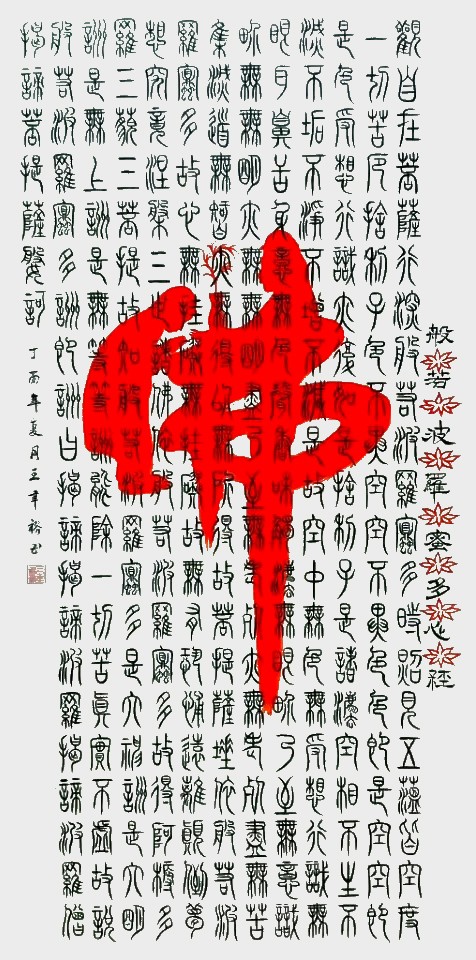 般若波羅蜜多心經
觀自在菩薩行深般若波羅蜜多時照見五蘊皆空度
一切苦厄捨利子色不異空空不異色色即是空空即
是色受想行識亦復如是捨利子是諸法空相不生不
滅不垢不淨不增不減是故空中無色無受想行識無
眼耳鼻舌身意無色聲香味觸法無眼界乃至無意識
界無無明亦無無明盡乃至無老死亦無老死盡無苦
集滅道無智亦無得以無所得故菩提薩埵依般若波
羅蜜多故心無罣礙無罣礙故無有恐怖遠離顛倒夢
想究竟涅槃三世諸佛依般若波羅蜜多故得阿耨多
羅三藐三菩提故知般若波羅蜜多是大神詶是大明
詶是無上詶是無等等詶能除一切苦真實不虛故說
般若波羅蜜多詶即詶曰揭諦揭諦波羅揭諦波羅僧
揭諦菩提薩婆訶
丁酉年夏月王
佛